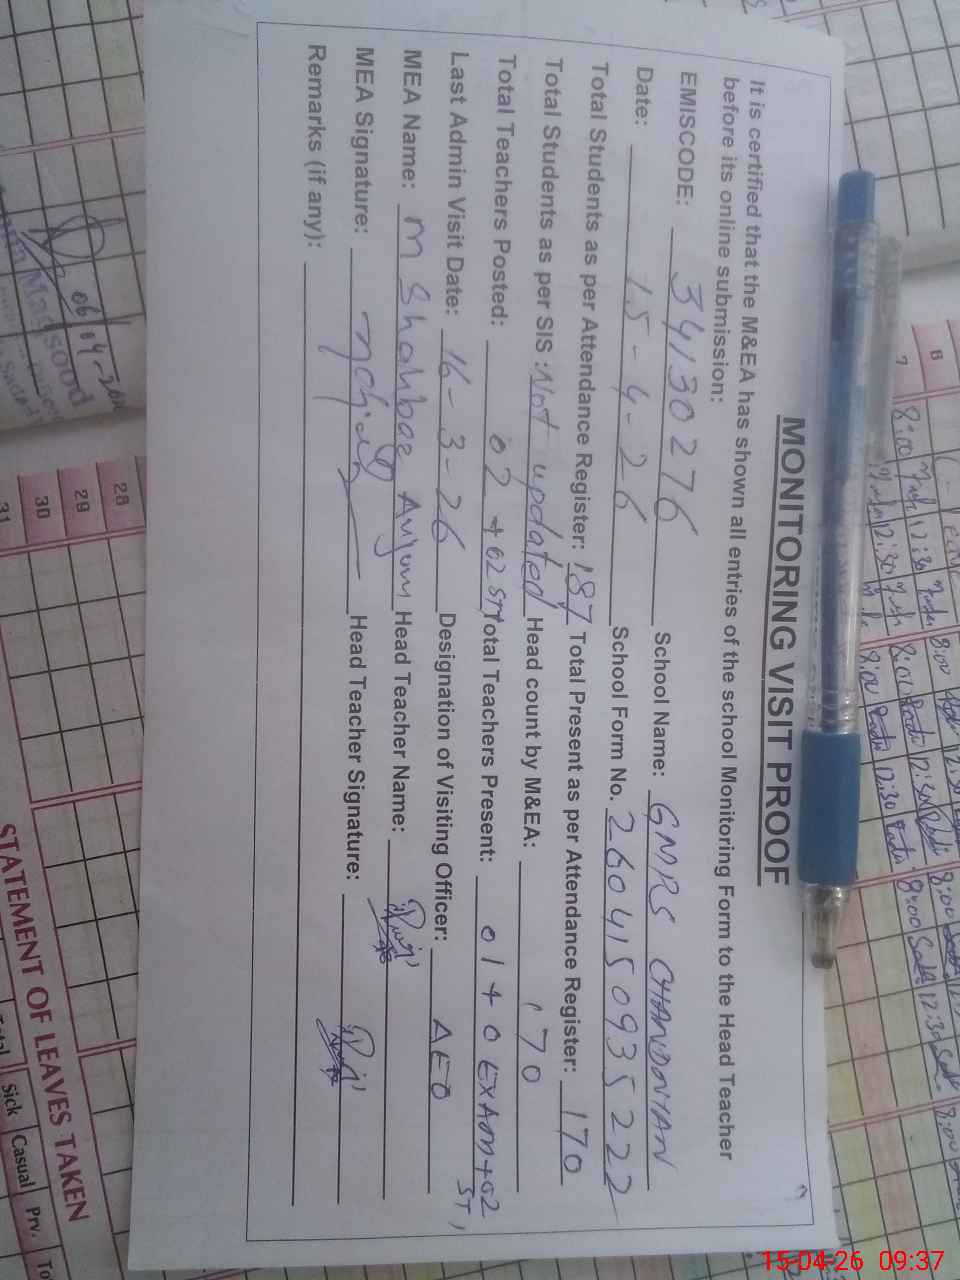 MONITORING VISIT PROOF
It is certified that the M&EA has shown all entries of the school Monitoring Form to the Head Teacher
before its online submission:
EMISCODE: 34130276 School Name: GMPS CHANDONIAN
Date: 15-4-26 School Form No. 260415093522
Total Students as per Attendance Register: 187 Total Present as per Attendance Register: 170
Total Students as per SIS: Not updated Head count by M&EA: 170
Total Teachers Posted: 02 + 02 STI Total Teachers Present: 01 + 0 EXAM + 02 ST,
Last Admin Visit Date: 16-3-26 Designation of Visiting Officer: AEO
MEA Name: M Shahbaz Anjum Head Teacher Name:
MEA Signature: Head Teacher Signature:
Remarks (if any):
06/04-
Masood
6
7
8:00 12:30 8:00
12:30 8:00 12:30 8:00
8:00 12:30 8:00 12:30 8:00
28
29
30
31
STATEMENT OF LEAVES TAKEN
Sick Casual Prv.
15-04-26 09:37